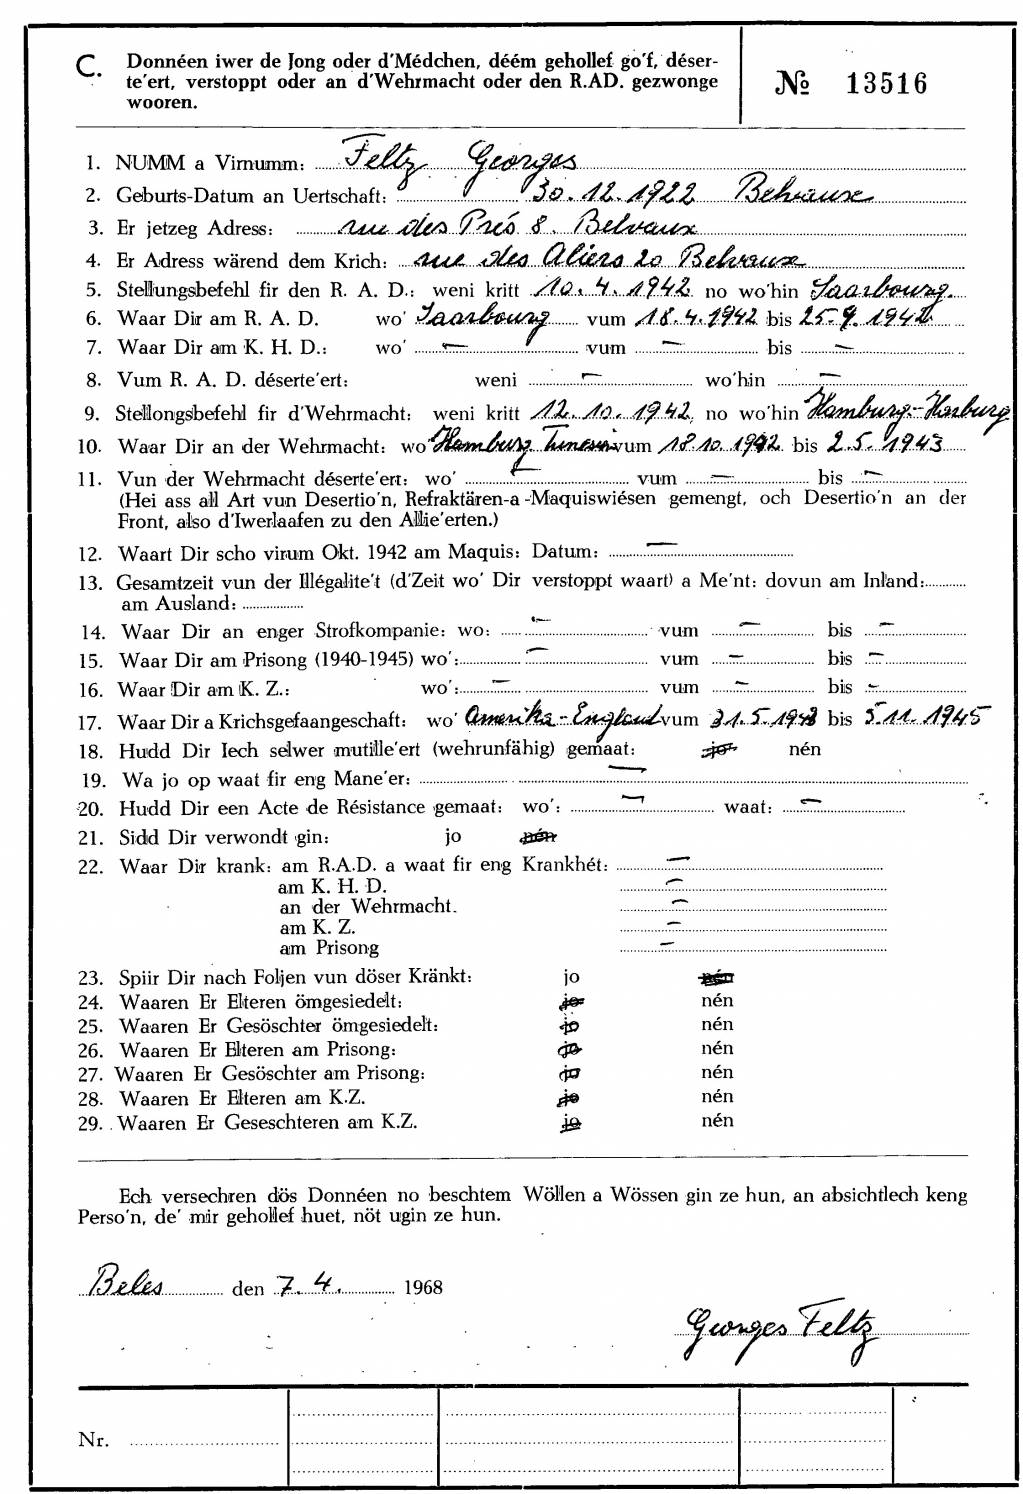 C. Donnéen iwer de Jong oder d'Médchen, déém gehollef go'f, déser-
te'ert, verstoppt oder an d'Wehrmacht oder den R.AD. gezwonge
wooren.
№ 13516
1. NUMM a Virnumm: Feltz Georges
2. Geburts-Datum an Uertschaft: 30.12.1922 Belvaux
3. Er jetzeg Adress: rue des Prés 8. Belvaux
4. Er Adress wärend dem Krich: rue des Aliers 20 Belvaux
5. Stellungsbefehl fir den R. A. D.: weni kritt 10.4.1942 no wo'hin Saarbourg.
6. Waar Dir am R. A. D. wo' Saarbourg vum 18.4.1942 bis 25.9.1942
7. Waar Dir am K. H. D.: wo' — vum — bis —
8. Vum R. A. D. déserte'ert: weni — wo'hin —
9. Stellongsbefehl fir d'Wehrmacht: weni kritt 12.10.1942 no wo'hin Hamburg-Harburg
10. Waar Dir an der Wehrmacht: wo' Hamburg Tunesien vum 18.10.1942 bis 2.5.1943
11. Vun der Wehrmacht déserte'ert: wo' — vum — bis —
(Hei ass all Art vun Desertio'n, Refraktären-a-Maquiswiésen gemengt, och Desertio'n an der
Front, also d'Iwerlaafen zu den Allie'erten.)
12. Waart Dir scho virum Okt. 1942 am Maquis: Datum: —
13. Gesamtzeit vun der Illégalite't (d'Zeit wo' Dir verstoppt waart) a Me'nt: dovun am Inland:
am Ausland:
14. Waar Dir an enger Strofkompanie: wo: — vum — bis —
15. Waar Dir am Prisong (1940-1945) wo': — vum — bis —
16. Waar Dir am K. Z.: wo': — vum — bis —
17. Waar Dir a Krichsgefaangeschaft: wo' Amerika-England vum 31.5.1943 bis 5.11.1945
18. Hudd Dir Iech selwer mutille'ert (wehrunfähig) gemaat: jo nén
19. Wa jo op waat fir eng Mane'er: —
20. Hudd Dir een Acte de Résistance gemaat: wo': — waat: —
21. Sidd Dir verwondt gin: jo nén
22. Waar Dir krank: am R.A.D. a waat fir eng Krankhét: —
am K. H. D. —
an der Wehrmacht. —
am K. Z. —
am Prisong —
23. Spiir Dir nach Foljen vun döser Kränkt: jo nén
24. Waaren Er Elteren ömgesiedelt: jo nén
25. Waaren Er Gesöschter ömgesiedelt: jo nén
26. Waaren Er Elteren am Prisong: jo nén
27. Waaren Er Gesöschter am Prisong: jo nén
28. Waaren Er Elteren am K.Z. jo nén
29. Waaren Er Geseschteren am K.Z. jo nén
Ech versechren dös Donnéen no beschtem Wöllen a Wössen gin ze hun, an absichtlech keng
Perso'n, de' mir gehollef huet, nöt ugin ze hun.
Beles den 7.4. 1968
Georges Feltz
Nr.